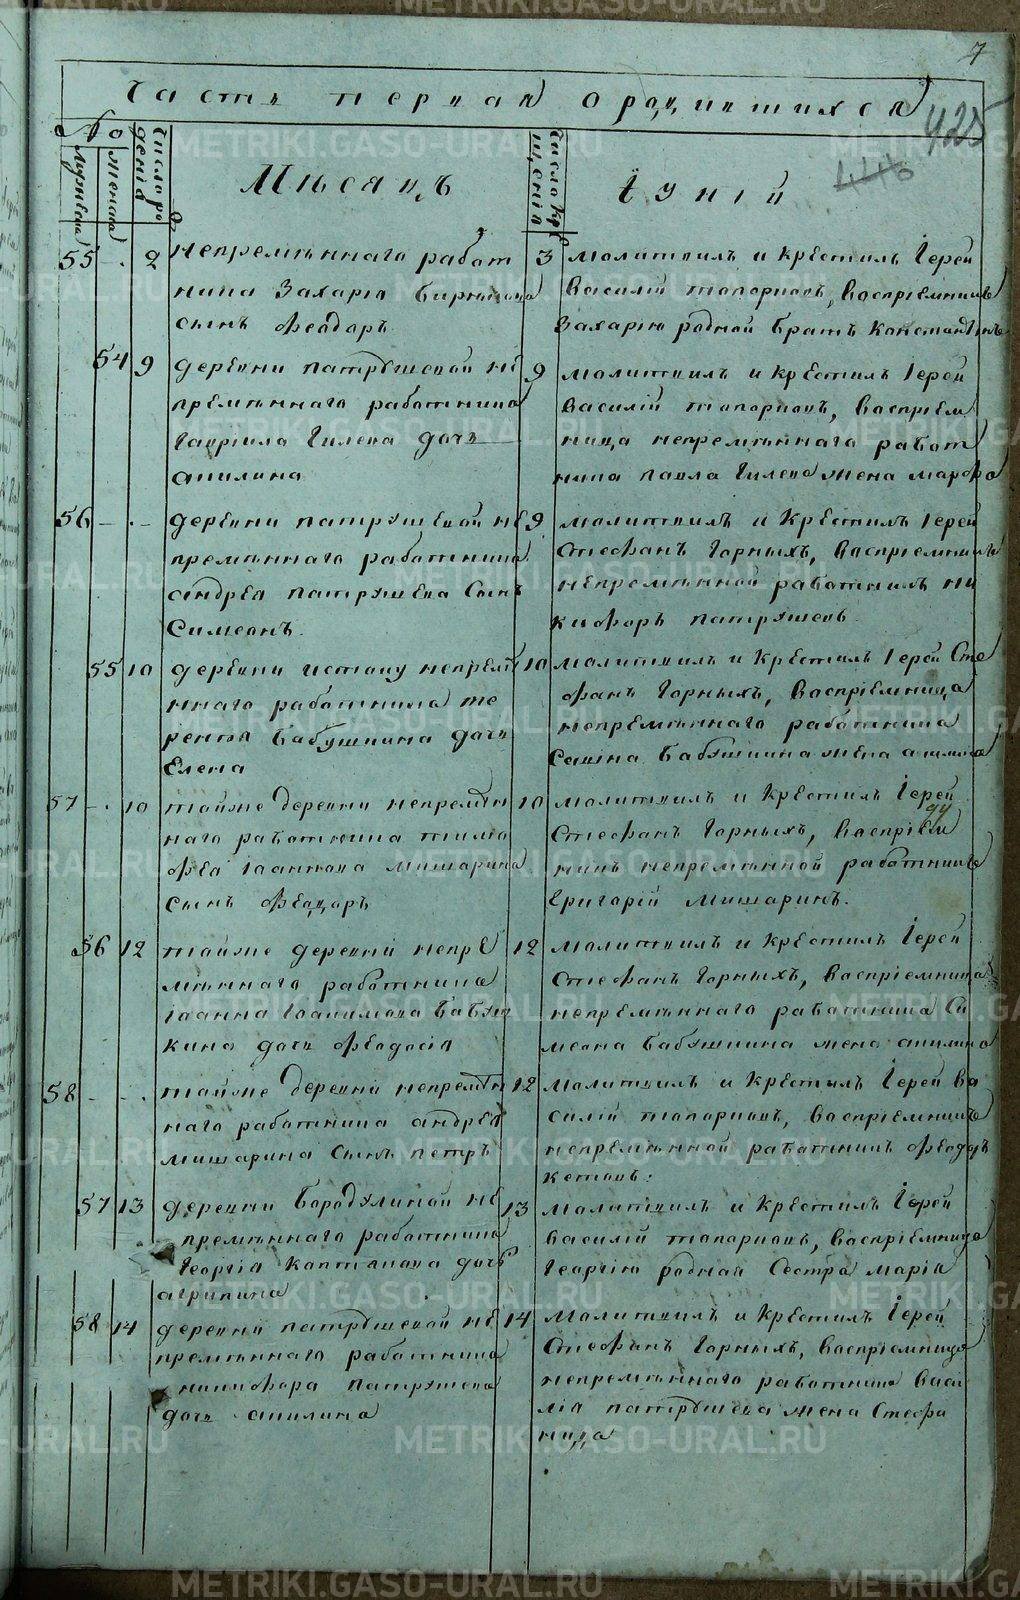 7
Часть первая о родившихся
425
№
мужеска
женска
число рождения
Мѣсяцъ
число крещенія
Іуній
55 - . 2 непремѣннаго работ
ника Захарія
сынъ Феодоръ
3 молитвилъ и крестилъ Іерей
Василій Топорковъ, воспріемникъ
Захарію родной братъ Константинъ
54 9 деревни Патрушевой не
премѣннаго работника
Гавріила Гилева дочь
Акилина
9 молитвилъ и крестилъ Іерей
Василій Топорковъ, воспріем
ница непремѣннаго работ
ника Павла Гилева жена Марфа
56 - . - деревни Патрушевой не
премѣннаго работника
Андрея Патрушева сынъ
Симеонъ.
9 молитвилъ и крестилъ Іерей
Стефанъ Горныхъ, воспріемникъ
непремѣнной работникъ Ни
кифоръ Патрушевъ
55 10 деревни Истоку непремѣ
ннаго работника Те
рентія Бабушкина дочь
Елена
10 молитвилъ и крестилъ Іерей Сте
фанъ Горныхъ, воспріемница
непремѣннаго работника
Бабушкина жена
57 - . 10 тойже деревни непремѣн
наго работника Тимо
фея Іоаннова Мишарина
сынъ Феодоръ
10 молитвилъ и крестилъ Іерей
Стефанъ Горныхъ, воспріем
никъ непремѣнной работникъ
Григорій Мишаринъ.
56 12 тойже деревни непре
мѣннаго работника
Іоанна Іоакимова Бабуш
кина дочь Феодосія
12 молитвилъ и крестилъ Іерей
Стефанъ Горныхъ, воспріемница
непремѣннаго работника Си
меона Бабушкина жена Акилина
58 - - . тойже деревни непремѣн
наго работника Андрея
Мишарина сынъ Петръ
12 молитвилъ и крестилъ Іерей Ва
силій Топорковъ, воспріемникъ
непремѣнной работникъ Феодоръ
Котовъ.
57 13 деревни Бородулиной не
премѣннаго работника
Георгія Каптанова дочь
Агрипина
13 молитвилъ и крестилъ Іерей
Василій Топорковъ, воспріемница
Георгію родная сестра Марія
58 14 деревни Патрушевой не
премѣннаго работника
Никифора Патрушева
дочь Акилина
14 молитвилъ и крестилъ Іерей
Стефанъ Горныхъ, воспріемница
непремѣннаго работника Васи
лія Патрушева жена Стефа
нида
METRIKI.GASO-URAL.RU